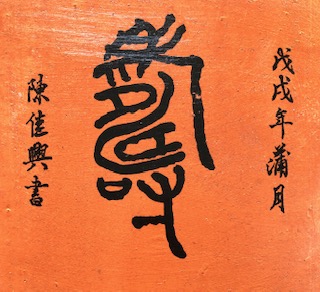 戊戌年蒲月
壽
陳佳興書